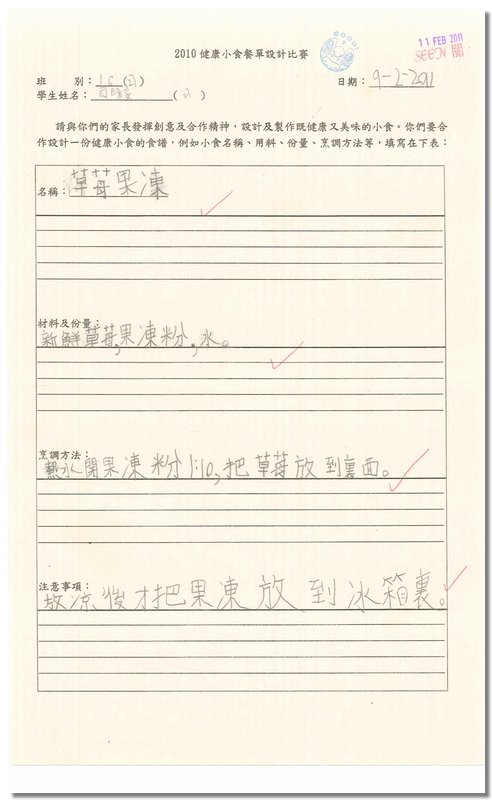 GOOD!
11 FEB 2011
SEEN 閱
2010 健康小食餐單設計比賽
班 別：1C(21) 日期：9-2-2011
學生姓名： (21)
請與你們的家長發揮創意及合作精神，設計及製作既健康又美味的小食。你們要合
作設計一份健康小食的食譜，例如小食名稱、用料、份量、烹調方法等，填寫在下表：
名稱：草莓果凍
材料及份量：
新鮮草莓,果凍粉,水。
烹調方法：
熱水開果凍粉1:10,把草莓放到裏面。
注意事項：
放涼後才把果凍放到冰箱裏。